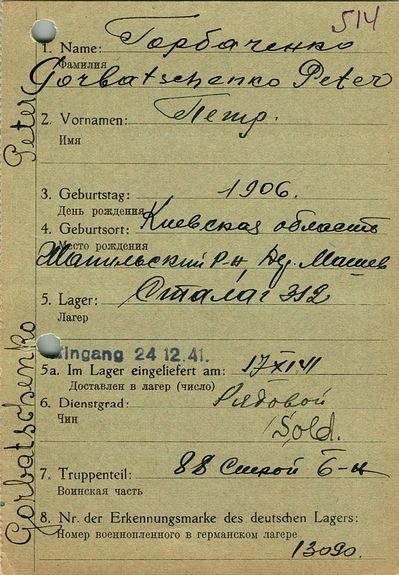 514
1. Name: Горбаченко
Фамилия
Gorbatschenko Peter
2. Vornamen: Петр.
Имя
3. Geburtstag: 1906.
День рождения
4. Geburtsort: Киевская область
Место рождения
р-н Дер.
5. Lager: Сталаг 312
Лагер
Eingang 24 12. 41.
5a. Im Lager eingeliefert am: 17 XI 41
Доставлен в лагер (число)
6. Dienstgrad: Рядовой
Чин Sold.
7. Truppenteil: 88 б-н
Воинская часть
8. Nr. der Erkennungsmarke des deutschen Lagers:
Номер военнопленного в германском лагере
13090.
Gorbatschenko Peter